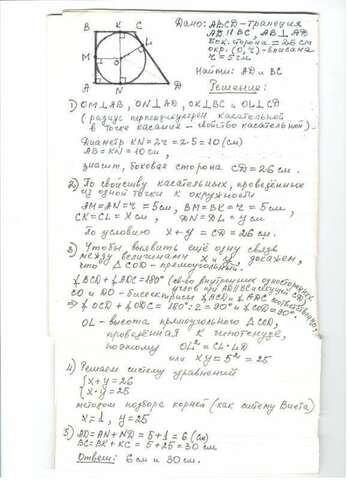 B K C
L
M O
A N D
Дано: ABCD - трапеция
AD || BC, AB ⊥ AD
Бок. сторона = 26 см
окр. (O, r) - вписана
r = 5 см
Найти: AD и BC
Решение:
1) OM⊥AB, ON⊥AD, OK⊥BC и OL⊥CD
(радиус перпендикулярен касательной
в точке касания - свойство касательной).
Диаметр KN = 2r = 2·5 = 10 (см)
AB = KN = 10 см,
значит, боковая сторона CD = 26 см.
2) По свойству касательных, проведённых
из одной точки к окружности
AM = AN = r = 5 см, BM = BK = r = 5 см,
CK = CL = x см, DN = DL = y см
По условию x + y = CD = 26 см.
3) Чтобы выявить ещё одну связь
между величинами x и y, докажем,
что △COD - прямоугольный.
∠BCD + ∠ADC = 180° (св-во внутренних односторонних
углов при AD||BC и секущей CD)
CO и DO - биссектрисы ∠BCD и ∠ADC соответственно
⇒ ∠OCD + ∠ODC = 180° : 2 = 90° и ∠COD = 90°.
OL - высота прямоугольного △COD,
проведённая к гипотенузе,
поэтому OL² = CL·LD
или xy = 5² = 25
4) Решаем систему уравнений
{x + y = 26
{x · y = 25
методом подбора корней (как систему Виета)
x = 1, y = 25
5) AD = AN + ND = 5 + 1 = 6 (см)
BC = BK + KC = 5 + 25 = 30 см
Ответ: 6 см и 30 см.